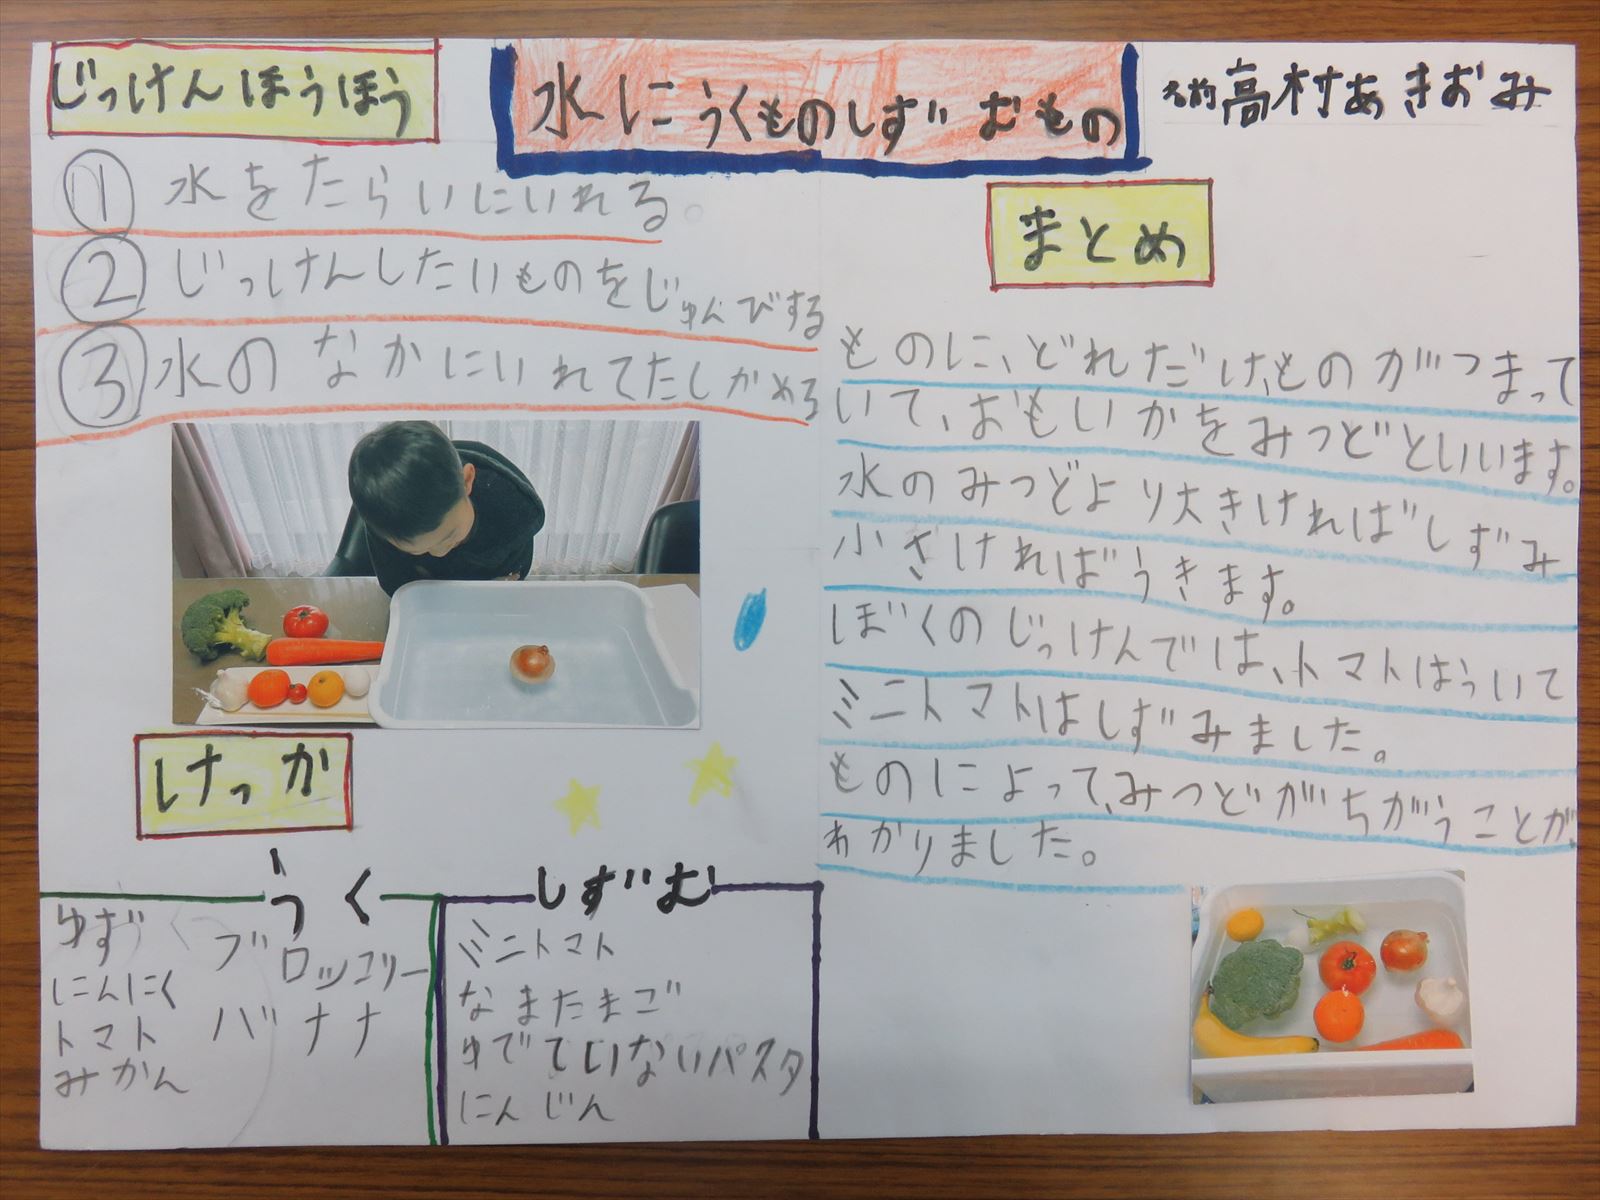 水にうくものしずむもの
名前 高村あきおみ
じっけんほうほう
① 水をたらいにいれる。
② じっけんしたいものをじゅんびする
③ 水のなかにいれてたしかめる
けっか
うく
ゆず
にんにく
トマト
みかん
ブロッコリー
バナナ
しずむ
ミニトマト
なまたまご
ゆでていないパスタ
にんじん
まとめ
ものに、どれだけ、ものがつまって
いて、おもいかをみつどといいます。
水のみつどより大きければしずみ
小さければうきます。
ぼくのじっけんでは、トマトはういて
ミニトマトはしずみました。
ものによって、みつどがちがうことが
わかりました。